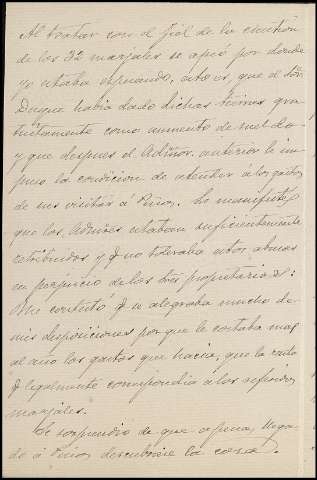 Al tratar con el fiel de la cuestión
de los 32 marjales se apeó por donde
yo estaba esperando, esto es, que el Sor.
Duque habia dado dichas tierras gra-
tuitamente como aumento de sueldo
y que despues el Admor. anterior le im-
puso la condicion de atender a los gastos
de sus visitas á Pinos. Le manifesté
que los Admores estaban suficientemente
retribuidos y q no toleraba estos abusos
en perjuicio de los tres propietarios:
Me contestó q se alegraba mucho de
mis disposiciones por que le costaba mas
al año los gastos que hacia, que la renta
q legalmente correspondia a los referidos
marjales.
Se sorprendio de que apenas llega-
do á Pinos descubriese la cosa.